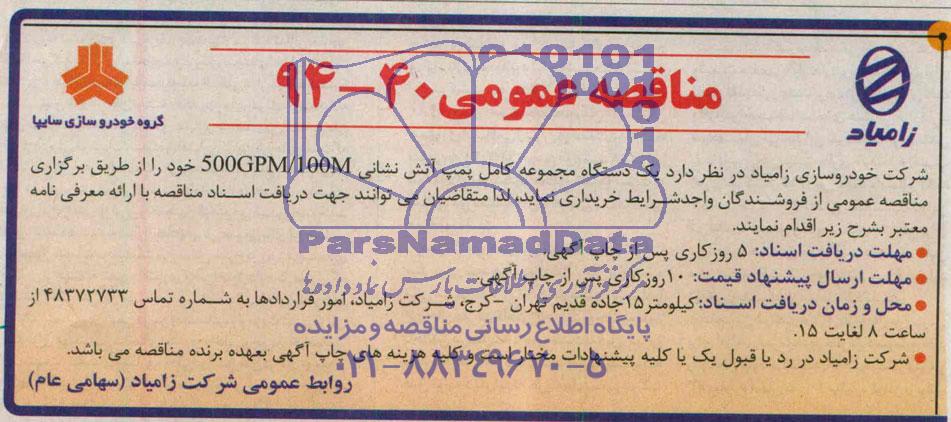 مناقصه عمومی ۴۰-۹۴
زامیاد
گروه خودروسازی سایپا
شرکت خودروسازی زامیاد در نظر دارد یک دستگاه مجموعه کامل پمپ آتش نشانی 500GPM/100M خود را از طریق برگزاری
مناقصه عمومی از فروشندگان واجدشرایط خریداری نماید، لذا متقاضیان می توانند جهت دریافت اسناد مناقصه با ارائه معرفی نامه
معتبر بشرح زیر اقدام نمایند.
● مهلت دریافت اسناد: ۵ روزکاری پس از چاپ آگهی.
● مهلت ارسال پیشنهاد قیمت: ۱۰روزکاری پس از چاپ آگهی.
● محل و زمان دریافت اسناد:کیلومتر۱۵جاده قدیم تهران -کرج، شرکت زامیاد، امور قراردادها به شماره تماس ۴۸۳۷۲۷۳۳ از
ساعت ۸ لغایت ۱۵.
● شرکت زامیاد در رد یا قبول یک یا کلیه پیشنهادات مختار است و کلیه هزینه های چاپ آگهی بعهده برنده مناقصه می باشد.
روابط عمومی شرکت زامیاد (سهامی عام)
ParsNamadData
مرکز فرآوری اطلاعات پارس نماد داده ها
پایگاه اطلاع رسانی مناقصه و مزایده
۰۲۱-۸۸۳۴۹۶۷۰-۵